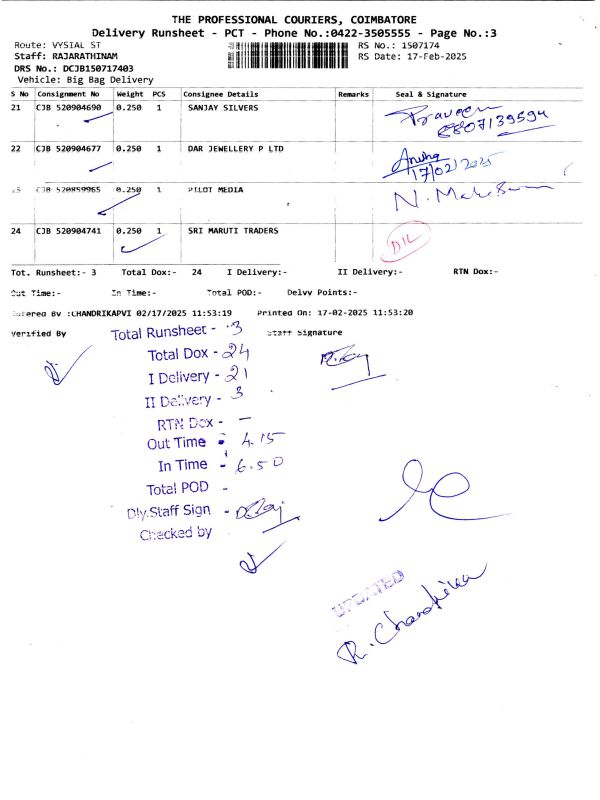 THE PROFESSIONAL COURIERS, COIMBATORE
Delivery Runsheet - PCT - Phone No.:0422-3505555 - Page No.:3
Route: VYSIAL ST RS No.: 1507174
Staff: RAJARATHINAM RS Date: 17-Feb-2025
DRS No.: DCJB150717403
Vehicle: Big Bag Delivery
S No Consignment No Weight PCS Consignee Details Remarks Seal & Signature
21 CJB 520904690 0.250 1 SANJAY SILVERS Praveen
8807139594
22 CJB 520904677 0.250 1 DAR JEWELLERY P LTD
17/02/2025
23 CJB 520859965 0.250 1 PILOT MEDIA
24 CJB 520904741 0.250 1 SRI MARUTI TRADERS
Tot. Runsheet:- 3 Total Dox:- 24 I Delivery:- II Delivery:- RTN Dox:-
Out Time:- In Time:- Total POD:- Delvy Points:-
Entered By :CHANDRIKAPVI 02/17/2025 11:53:19 Printed On: 17-02-2025 11:53:20
Verified By Staff Signature
Total Runsheet - 3
Total Dox - 24
I Delivery - 21
II Delivery - 3
RTN Dox - —
Out Time - 4.15
In Time - 6.50
Total POD -
Dly.Staff Sign -
Checked by
UPDATED
R. Chandrika